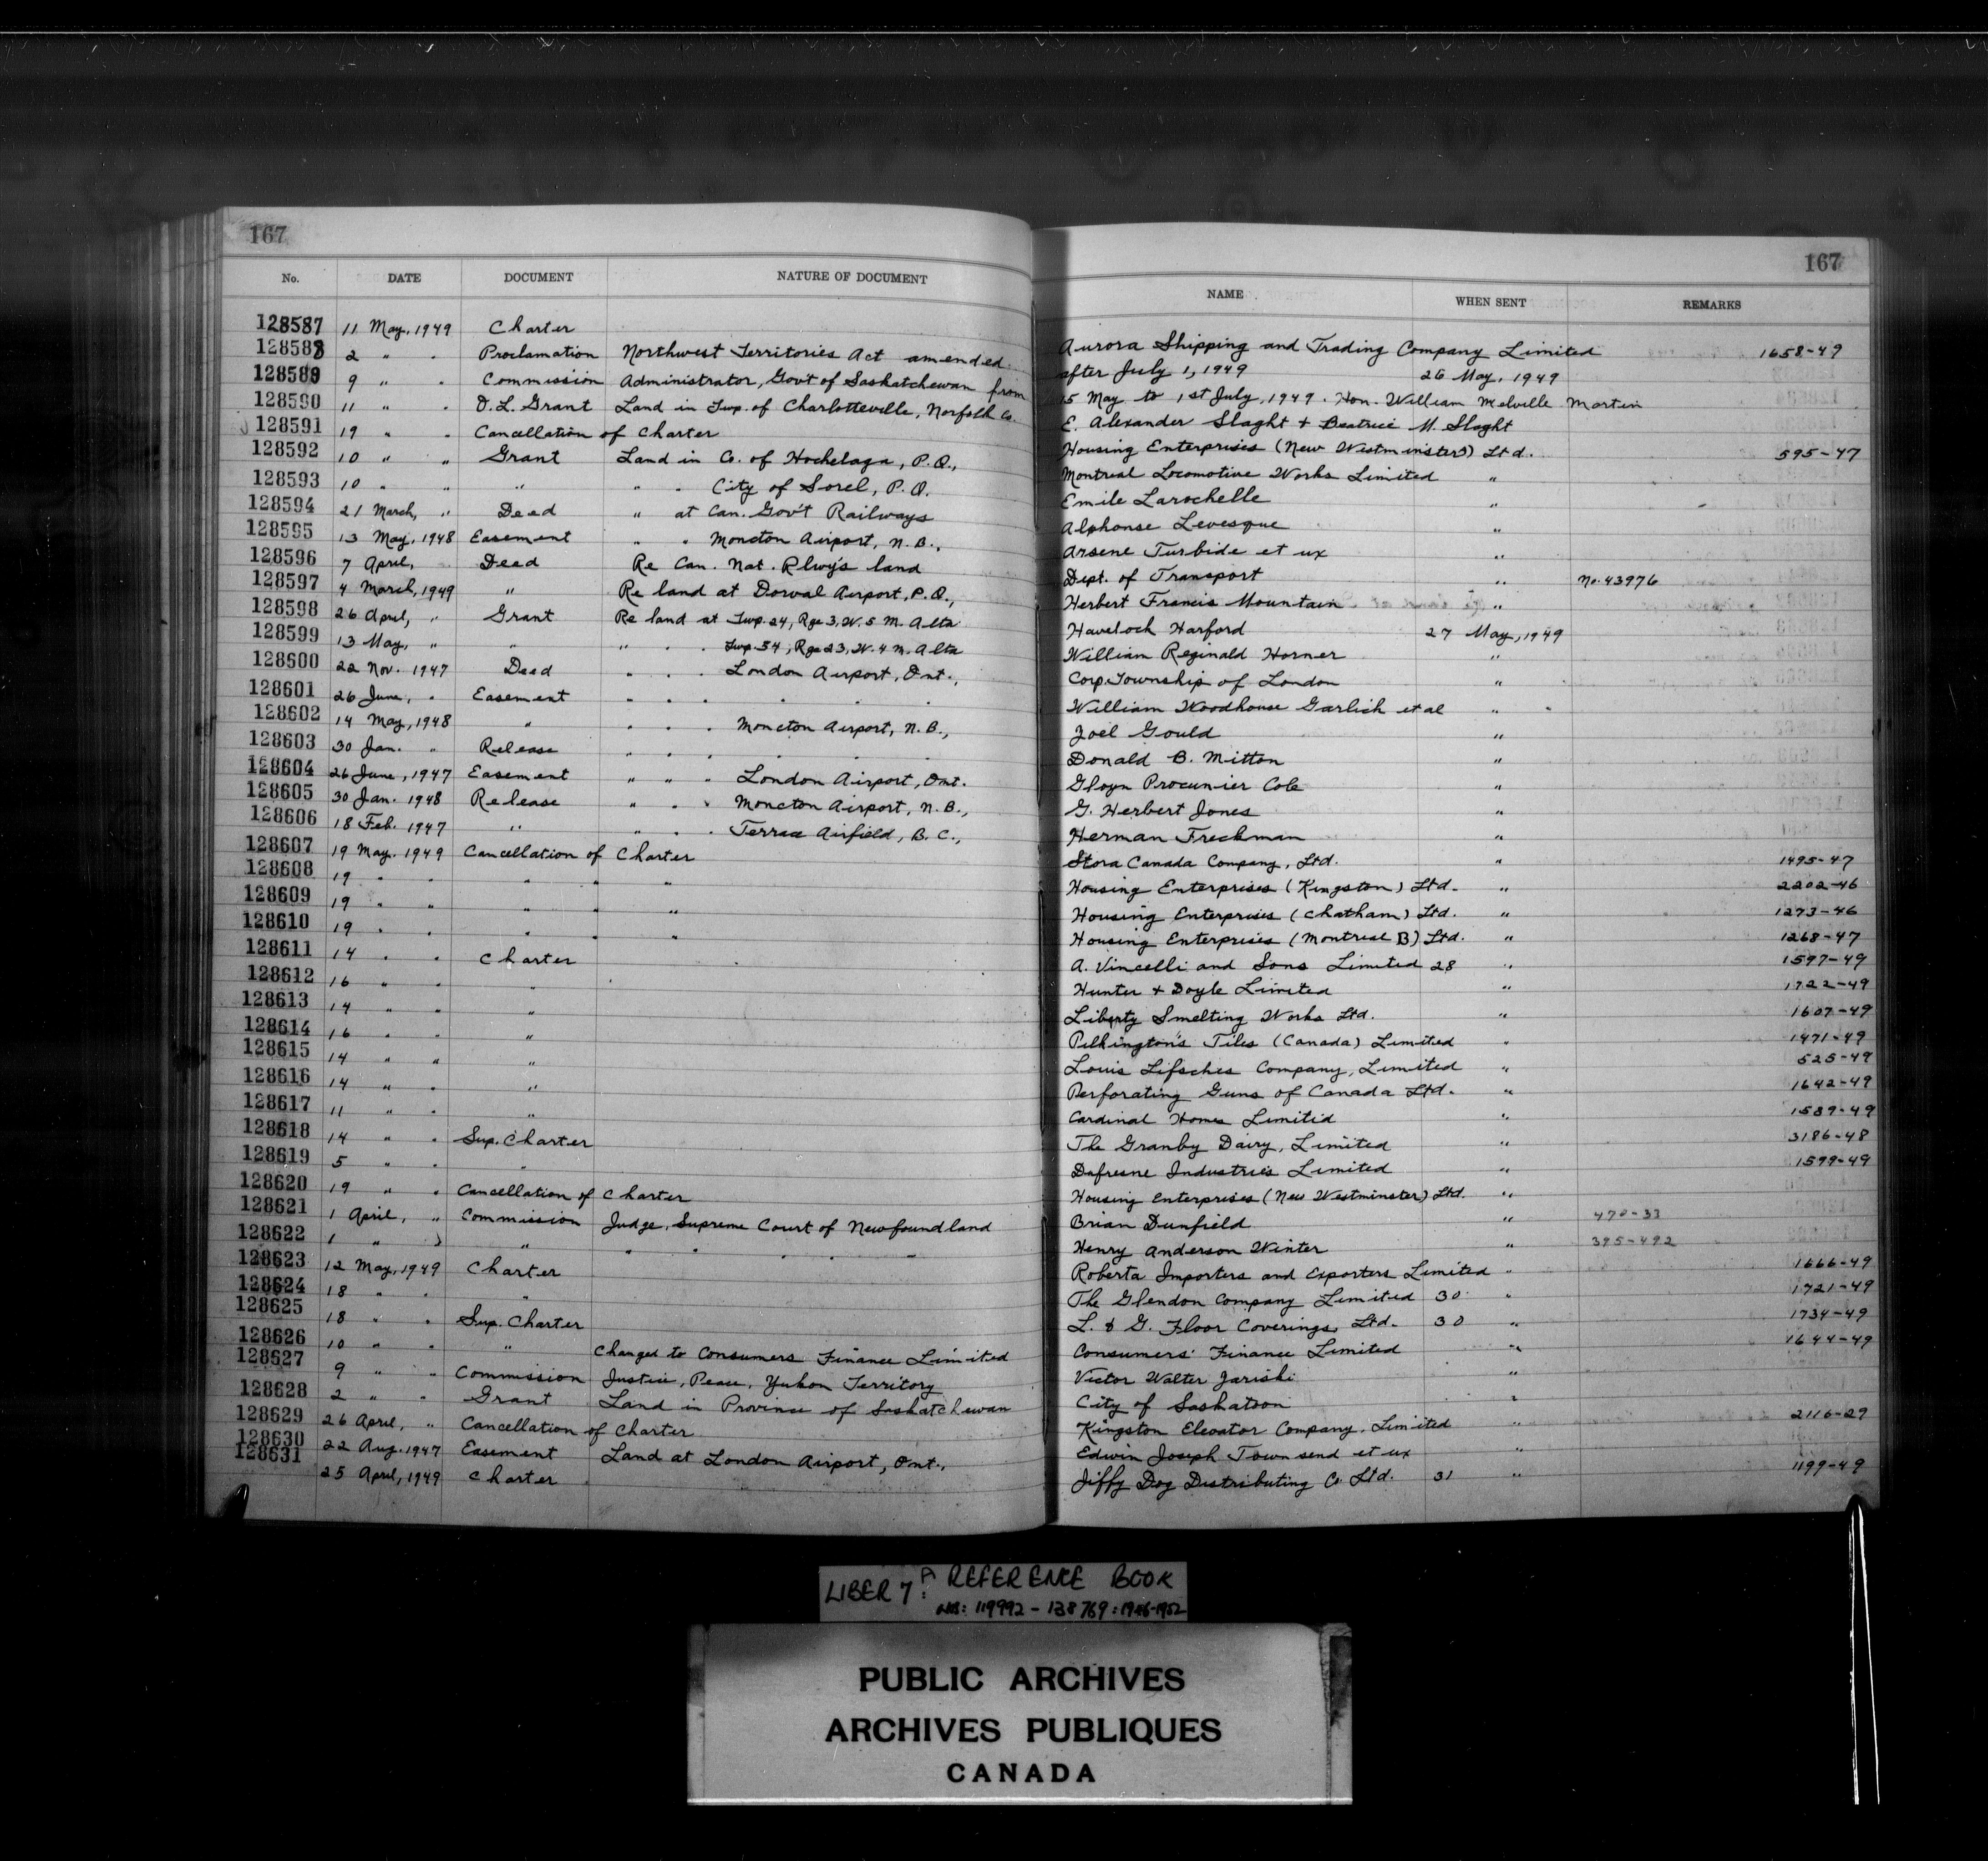 167
167
No. DATE DOCUMENT NATURE OF DOCUMENT NAME WHEN SENT REMARKS
128587 11 May, 1949 Charter Aurora Shipping and Trading Company Limited 1658-49
128588 2 " " Proclamation Northwest Territories Act amended after July 1, 1949 26 May, 1949
128589 9 " " Commission Administrator, Gov't of Saskatchewan from 15 May to 1st July, 1949. Hon. William Melville Martin
128590 11 " " O. L. Grant Land in Twp. of Charlotteville, Norfolk Co. E. Alexander Slaght + Beatrice M. Slaght
128591 19 " " Cancellation of Charter Housing Enterprises (New Westminster) Ltd. 595-47
128592 10 " " Grant Land in Co. of Hochelaga, P.Q., Montreal Locomotive Works Limited "
128593 10 " " " " " City of Sorel, P.Q. Emile Larochelle "
128594 21 March, " Deed " at Can. Gov't Railways Alphonse Levesque "
128595 13 May, 1948 Easement " " Moncton Airport, N.B., Arsene Turbide et ux "
128596 7 April, " Deed Re Can. Nat. Rlwy's land Dept. of Transport " No. 43976
128597 4 March, 1949 " Re land at Dorval Airport, P.Q., Herbert Francis Mountain "
128598 26 April, " Grant Re land at Twp. 24, Rge 3, W. 5 M. Alta Havelock Harford 27 May, 1949
128599 13 May, " " " " " Twp. 54, Rge 23, W. 4 M. Alta William Reginald Horner "
128600 22 Nov. 1947 Deed " " " London Airport, Ont., Corp. Township of London "
128601 26 June, " Easement " " " " " William Woodhouse Garlick et al " "
128602 14 May, 1948 " " " " Moncton Airport, N.B., Joel Gould "
128603 30 Jan. " Release " " " " " Donald B. Mitton "
128604 26 June, 1947 Easement " " " London Airport, Ont. Gloyn Procunier Cole "
128605 30 Jan. 1948 Release " " " Moncton Airport, N.B., G. Herbert Jones "
128606 18 Feb. 1947 " " " " Terrace Airfield, B.C., Herman Freckman "
128607 19 May. 1949 Cancellation of Charter Stora Canada Company, Ltd. " 1495-47
128608 19 " " " " " Housing Enterprises (Kingston) Ltd. " 2202-46
128609 19 " " " " " Housing Enterprises (Chatham) Ltd. " 1273-46
128610 19 " " " " " Housing Enterprises (Montreal B) Ltd. " 1268-47
128611 14 " " Charter A. Vincelli and Sons Limited 28 " 1597-49
128612 16 " " " Hunter + Doyle Limited " 1722-49
128613 14 " " " Liberty Smelting Works Ltd. " 1607-49
128614 16 " " " Pilkington's Tiles (Canada) Limited " 1471-49
128615 14 " " " Louis Lifsches Company, Limited " 525-49
128616 14 " " " Perforating Guns of Canada Ltd. " 1642-49
128617 11 " " " Cardinal Homes Limited " 1589-49
128618 14 " " Sup. Charter The Granby Dairy, Limited " 3186-48
128619 5 " " " Dufresne Industries Limited " 1599-49
128620 19 " " Cancellation of Charter Housing Enterprises (New Westminster) Ltd. "
128621 1 April, " Commission Judge, Supreme Court of Newfoundland Brian Dunfield " 470-33
128622 1 " " " " " " " " Henry Anderson Winter " 395-492
128623 12 May, 1949 Charter Roberta Importers and Exporters Limited " 1666-49
128624 18 " " " The Glendon Company Limited 30 " 1721-49
128625 18 " " Sup. Charter L. & G. Floor Coverings, Ltd. 30 " 1734-49
128626 10 " " " Changed to Consumers Finance Limited Consumers' Finance Limited " 1644-49
128627 9 " " Commission Justice, Peace, Yukon Territory Victor Walter "
128628 2 " " Grant Land in Province of Saskatchewan City of Saskatoon "
128629 26 April, " Cancellation of Charter Kingston Elevator Company, Limited " 2116-29
128630 22 Aug. 1947 Easement Land at London Airport, Ont., Edwin Joseph Townsend et ux "
128631 25 April, 1949 Charter Jiffy Dog Distributing Co. Ltd. 31 " 1199-49
LIBER 7A: REFERENCE BOOK
NOS: 119992-138769: 1946-1952
PUBLIC ARCHIVES
ARCHIVES PUBLIQUES
CANADA